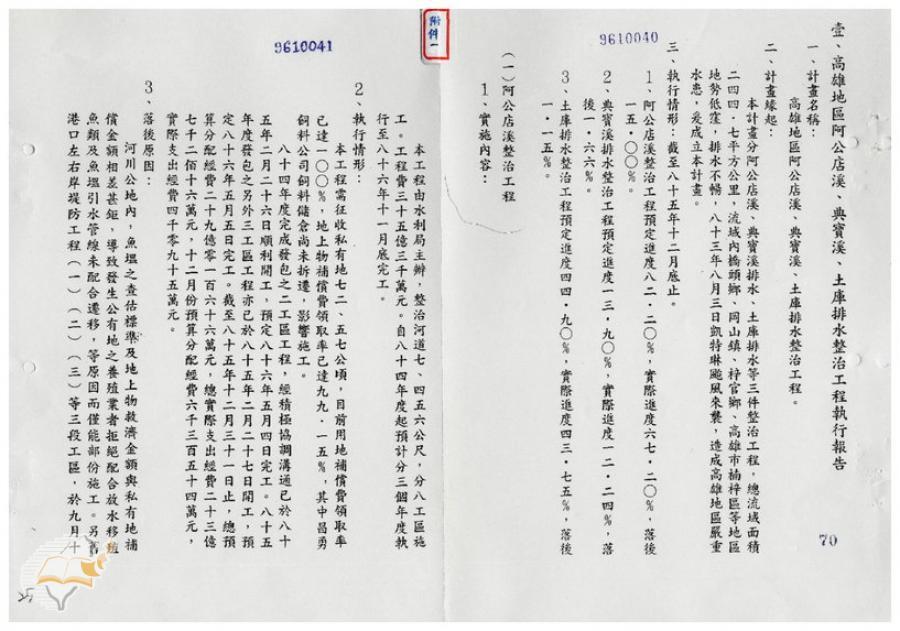 9610040
壹、高雄地區阿公店溪、典寶溪、土庫排水整治工程執行報告
一、計畫名稱：
高雄地區阿公店溪、典寶溪、土庫排水整治工程。
二、計畫緣起：
本計畫分阿公店溪、典寶溪排水、土庫排水等三件整治工程，總流域面積
二四四·七平方公里，流域內橋頭鄉、岡山鎮、梓官鄉、高雄市楠梓區等地區
地勢低窪，排水不暢，八十三年八月三日凱特琳颱風來襲，造成高雄地區嚴重
水患，爰成立本計畫。
三、執行情形：截至八十五年十二月底止。
1、阿公店溪整治工程預定進度八二·二〇％，實際進度六七·二〇％，落後
一五·〇〇％。
2、典寶溪排水整治工程預定進度一三·九〇％，實際進度一二·二四％，落
後一·六六％。
3、土庫排水整治工程預定進度四四·九〇％，實際進度四三·七五％，落後
一·一五％。
（一）阿公店溪整治工程
1、實施內容：
70
附件一
9610041
本工程由水利局主辦，整治河道七、四五六公尺，分八工區施
工。工程費三十五億三千萬元。自八十四年度起預計分三個年度執
行至八十六年十一月底完工。
2、執行情形：
本工程需征收私有地七二、五七公頃，目前用地補償費領取率
已達一〇〇％，地上物補償費領取率已達九九·一五％，其中昌勇
飼料公司飼料儲倉尚未拆遷，影響施工。
八十四年度完成發包之二工區工程，經積極協調溝通已於八十
五年二月二十六日順利開工，預定八十六年五月四日完工。八十五
年度發包之另外三工區工程亦已於八十五年二月二十七日開工，預
定八十六年五月五日完工。截至八十五年十二月三十一日止，總預
算分配經費二十九億零一百六十六萬元，總實際支出經費二十三億
七千二佰十六萬元，十二月份預算分配經費六千三百五十四萬元，
實際支出經費四千零九十五萬元。
3、落後原因：
河川公地內，魚塭之查估標準及地上物救濟金額與私有地補
償金額相差甚鉅，導致發生公有地之養殖業者拒絕配合放水移殖
魚類及魚塭引水管線未配合遷移，等原因而僅能部份施工。另舊
港口左右岸堤防工程（一）（二）（三）等三段工區，於九月十